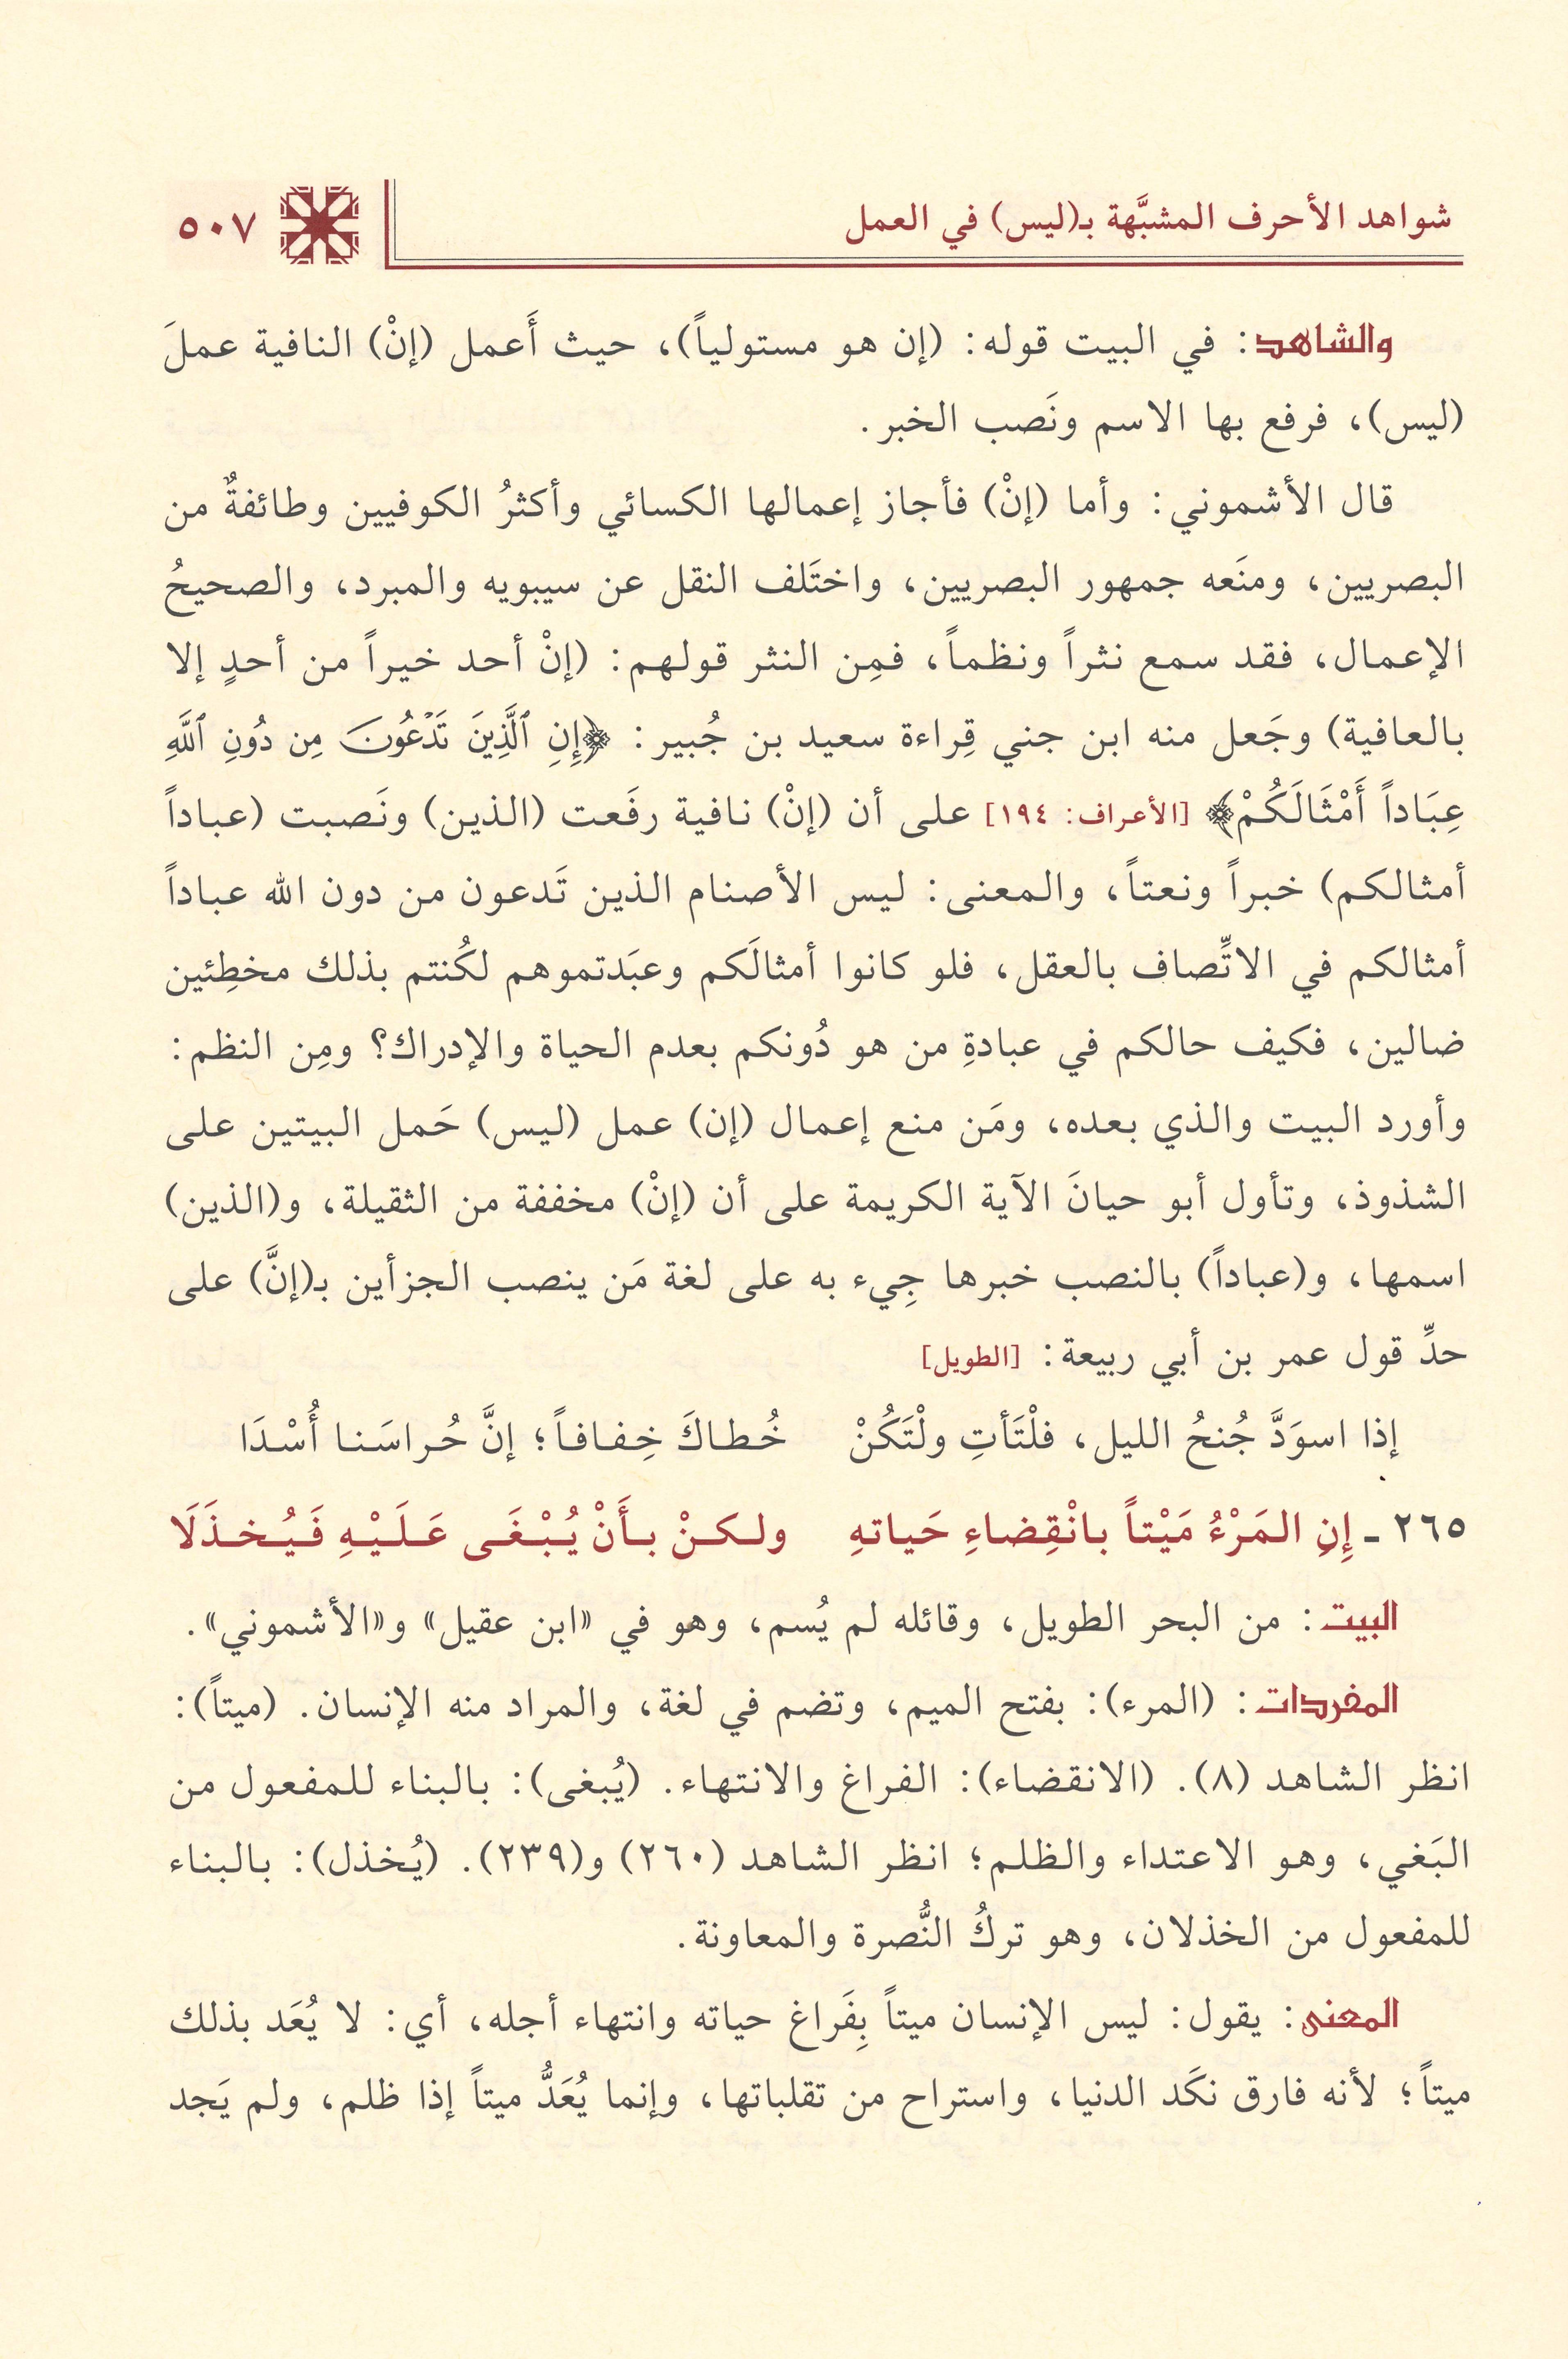 شواهد الأحرف المشبَّهة بـ(ليس) في العمل
٥٠٧
والشاهد: في البيت قوله: (إن هو مستولياً)، حيث أَعمل (إنْ) النافية عملَ
(ليس)، فرفع بها الاسم ونَصب الخبر.
قال الأشموني: وأما (إنْ) فأجاز إعمالها الكسائي وأكثرُ الكوفيين وطائفةٌ من
البصريين، ومنَعه جمهور البصريين، واختَلف النقل عن سيبويه والمبرد، والصحيحُ
الإعمال، فقد سمع نثراً ونظماً، فمِن النثر قولهم: (إنْ أحد خيراً من أحدٍ إلا
بالعافية) وجَعل منه ابن جني قِراءة سعيد بن جُبير: ﴿إِنِ ٱلَّذِينَ تَدْعُونَ مِن دُونِ ٱللَّهِ
عِبَاداً أَمْثَالَكُمْ﴾ [الأعراف: ١٩٤] على أن (إنْ) نافية رفَعت (الذين) ونَصبت (عباداً
أمثالكم) خبراً ونعتاً، والمعنى: ليس الأصنام الذين تَدعون من دون الله عباداً
أمثالكم في الاتِّصاف بالعقل، فلو كانوا أمثالَكم وعبَدتموهم لكُنتم بذلك مخطِئين
ضالين، فكيف حالكم في عبادةِ من هو دُونكم بعدم الحياة والإدراك؟ ومِن النظم:
وأورد البيت والذي بعده، ومَن منع إعمال (إن) عمل (ليس) حَمل البيتين على
الشذوذ، وتأول أبو حيانَ الآية الكريمة على أن (إنْ) مخففة من الثقيلة، و(الذين)
اسمها، و(عباداً) بالنصب خبرها جِيء به على لغة مَن ينصب الجزأين بـ(إنَّ) على
حدِّ قول عمر بن أبي ربيعة: [الطويل]
إذا اسوَدَّ جُنحُ الليل، فلْتَأتِ ولْتَكُنْ خُطاكَ خِفافاً؛ إنَّ حُراسَنا أُسْدَا
٢٦٥ ـ إِنِ المَرْءُ مَيْتاً بانْقِضاءِ حَياتهِ ولكنْ بأَنْ يُبْغَى عَلَيْهِ فَيُخذَلَا
البيت: من البحر الطويل، وقائله لم يُسم، وهو في «ابن عقيل» و«الأشموني».
المفردات: (المرء): بفتح الميم، وتضم في لغة، والمراد منه الإنسان. (ميتاً):
انظر الشاهد (٨). (الانقضاء): الفراغ والانتهاء. (يُبغى): بالبناء للمفعول من
البَغي، وهو الاعتداء والظلم؛ انظر الشاهد (٢٦٠) و(٢٣٩). (يُخذل): بالبناء
للمفعول من الخذلان، وهو تركُ النُّصرة والمعاونة.
المعنى: يقول: ليس الإنسان ميتاً بِفَراغ حياته وانتهاء أجله، أي: لا يُعَد بذلك
ميتاً؛ لأنه فارق نكَد الدنيا، واستراح من تقلباتها، وإنما يُعَدُّ ميتاً إذا ظلم، ولم يَجد